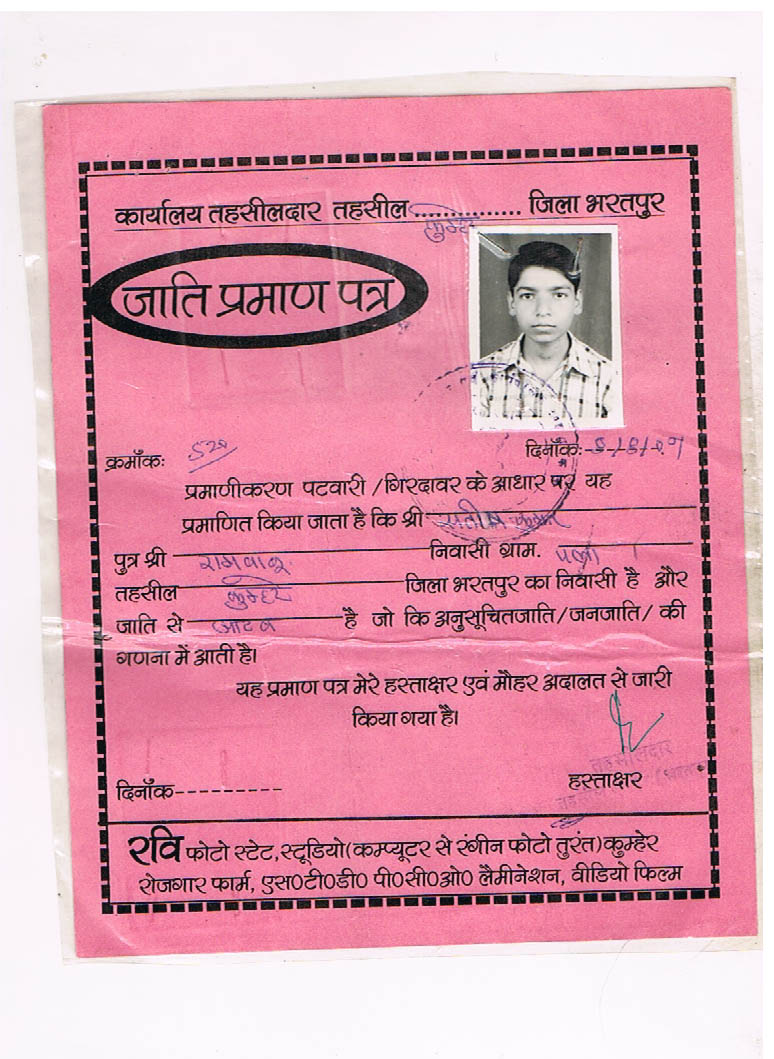 कार्यालय तहसीलदार तहसील कुम्हेर जिला भरतपुर
जाति प्रमाण पत्र
क्रमाँक: 520
दिनाँक:
प्रमाणीकरण पटवारी /गिरदावर के आधार पर यह
प्रमाणित किया जाता है कि श्री
पुत्र श्री निवासी ग्राम.
तहसील कुम्हेर जिला भरतपुर का निवासी है और
जाति से जाटव है जो कि अनुसूचितजाति/जनजाति/ की
गणना में आती है।
यह प्रमाण पत्र मेरे हस्ताक्षर एवं मौहर अदालत से जारी
किया गया है।
तहसीलदार
दिनाँक----------
हस्ताक्षर
रवि फोटो स्टेट,स्टूडियो(कम्प्यूटर से रंगीन फोटो तुरंत)कुम्हेर
रोजगार फार्म, एस0टी0डी0 पी0सी0ओ0 लैमीनेशन, वीडियो फिल्म